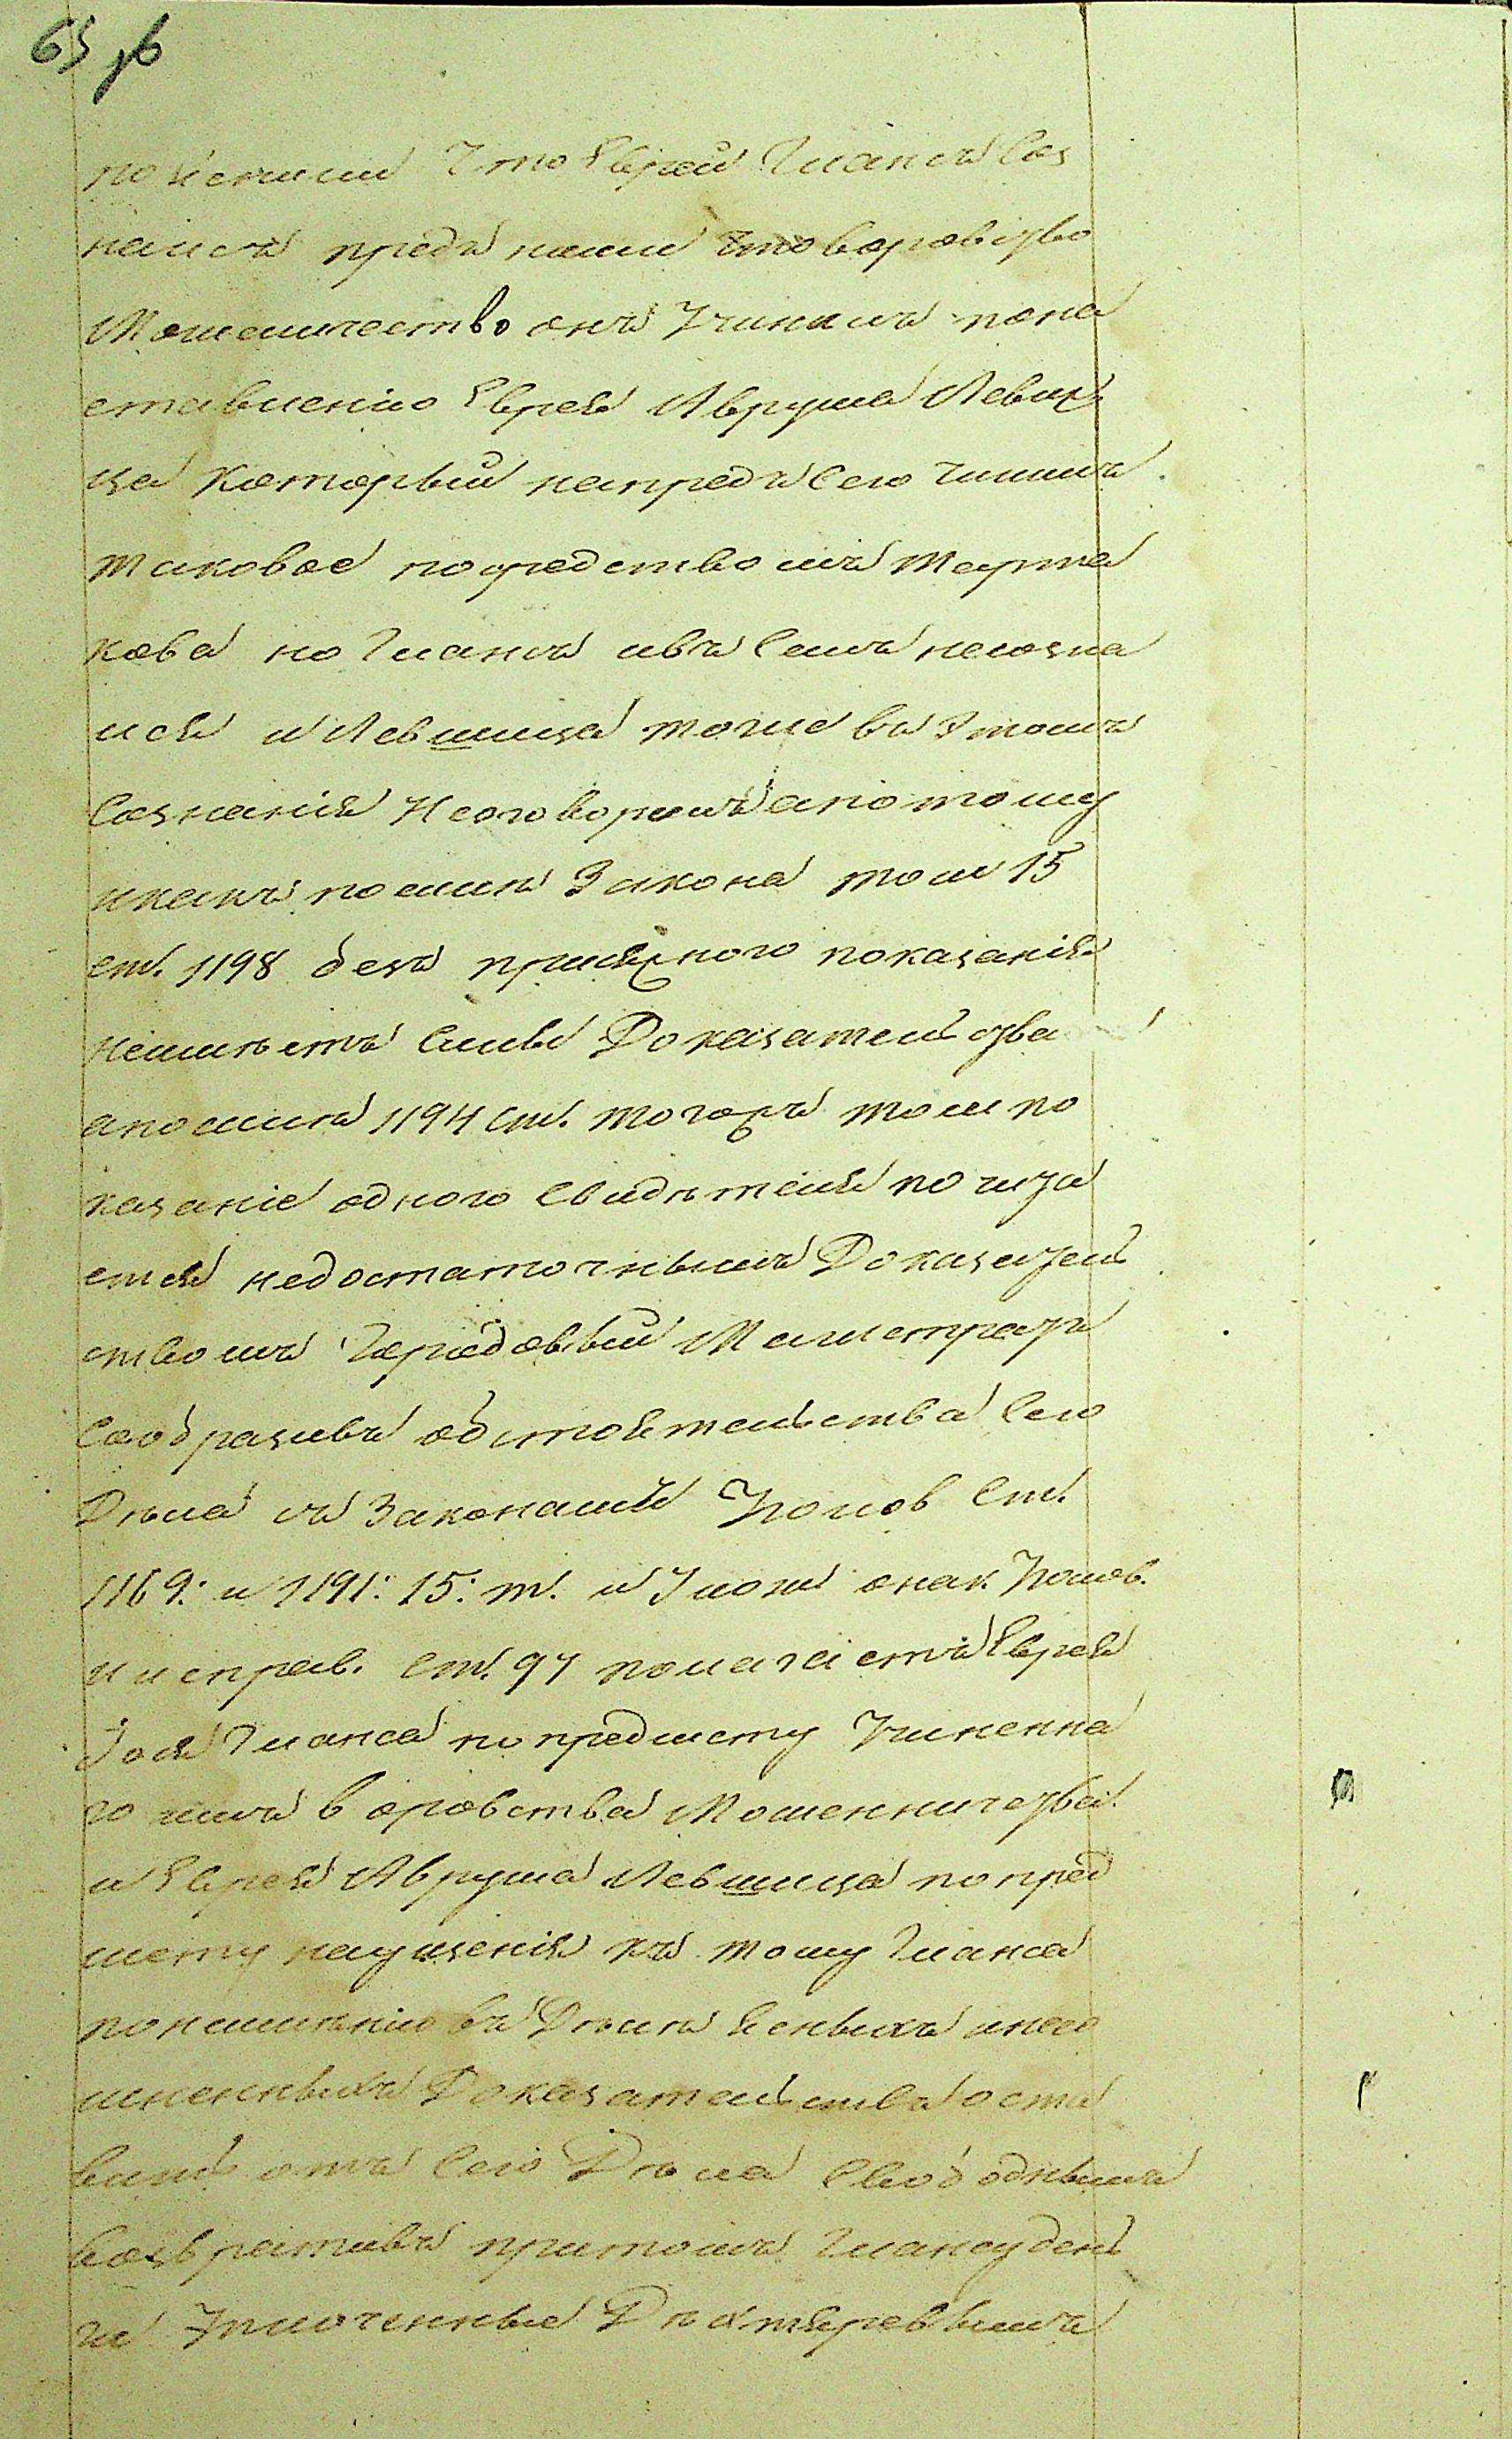 65 об
пояснили что еврей Глансъ соз
налсѧ предъ ними что воровство
Мошеничество онъ учинилъ пона
ставленію еврея Аврума Левши
ца который напредъ сего чинилъ
таковое посредствомъ
кова но Глансъ въ семъ несозна
лся и Левшица тоже въ этомъ
сознаніи неоговорилъ апотому
икакъ посилѣ Закона том 15
ст. 1198 безъ присяжного показанія
неимѣетъ силы Доказательства
апосилѣ 1194 ст. тогожъ том по
казаніе одного свидѣтеля почита
ется недостаточнымъ Доказатель
ствомъ Городовый Магистратъ
сообразивъ обстоятельства сего
Дѣла съ законами Уголов ст.
1169: и 1191: 15: т. и Улож: о нак. Уголов.
и исправ. ст. 97 полагаетъ еврея
Іося Гланса попредмету учиненна
го имъ воровства Мошенничества
и еврея Аврума Левшица попред
мету наущенія къ тому Гланса
понеимѣнію въ Дѣлѣ ясныхъ инесо
мненныхъ Доказательствъ оста
вить отъ сего Дѣла свободнымъ
возвративъ притомъГлансу день
ги уплоченные Дѣхтяревымъ